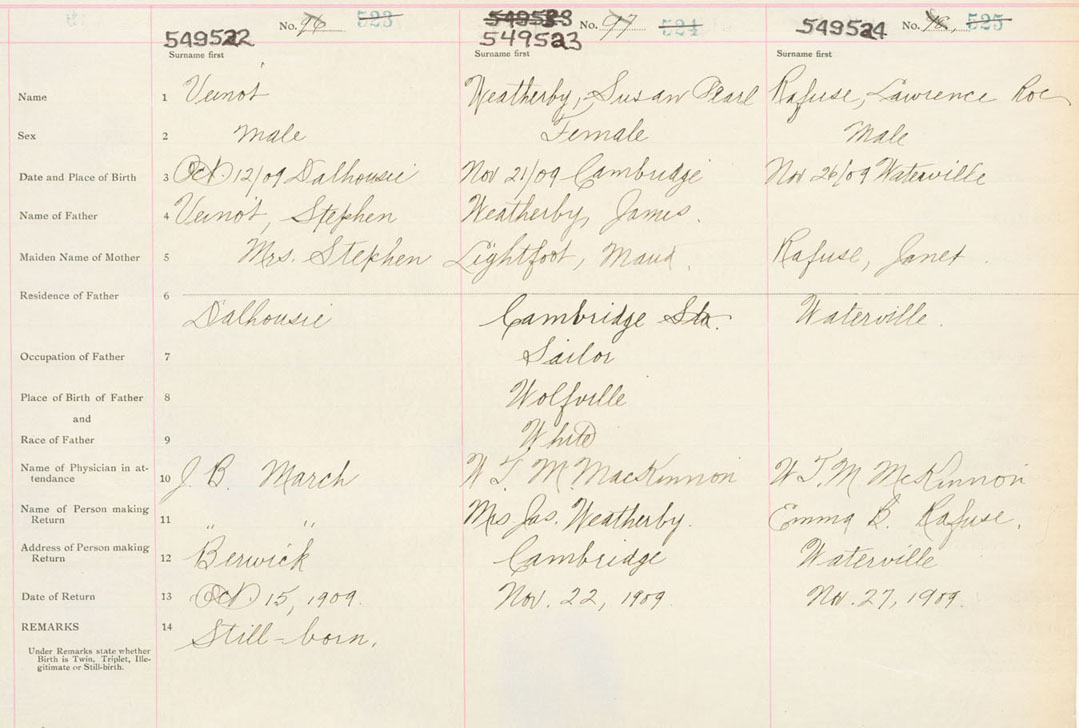 No. 96 523 549533 No. 97 524 549524 No. 98, 525
549522 549523
Surname first Surname first Surname first
Name 1 Veinot Weatherby, Susan Pearl Rafuse, Lawrence Roe
Sex 2 Male Female Male
Date and Place of Birth 3 Oct 12/09 Dalhousie Nov 21/09 Cambridge Nov 26/09 Waterville
Name of Father 4 Veinot, Stephen Weatherby, James.
Maiden Name of Mother 5 Mrs. Stephen Lightfoot, Maud. Rafuse, Janet.
Residence of Father 6
Dalhousie Cambridge Sta. Waterville.
Occupation of Father 7 Sailor
Place of Birth of Father 8 Wolfville
and
Race of Father 9 White
Name of Physician in at-
tendance 10 J. B. March W T. M. MacKinnon W T. M McKinnon
Name of Person making
Return 11 " " Mrs Jas. Weatherby. Emma B. Rafuse.
Address of Person making
Return 12 Berwick Cambridge Waterville
Date of Return 13 Oct 15, 1909. Nov. 22, 1909. Nov. 27, 1909.
REMARKS 14 Still-born.
Under Remarks state whether
Birth is Twin, Triplet, Ille-
gitimate or Still-birth.